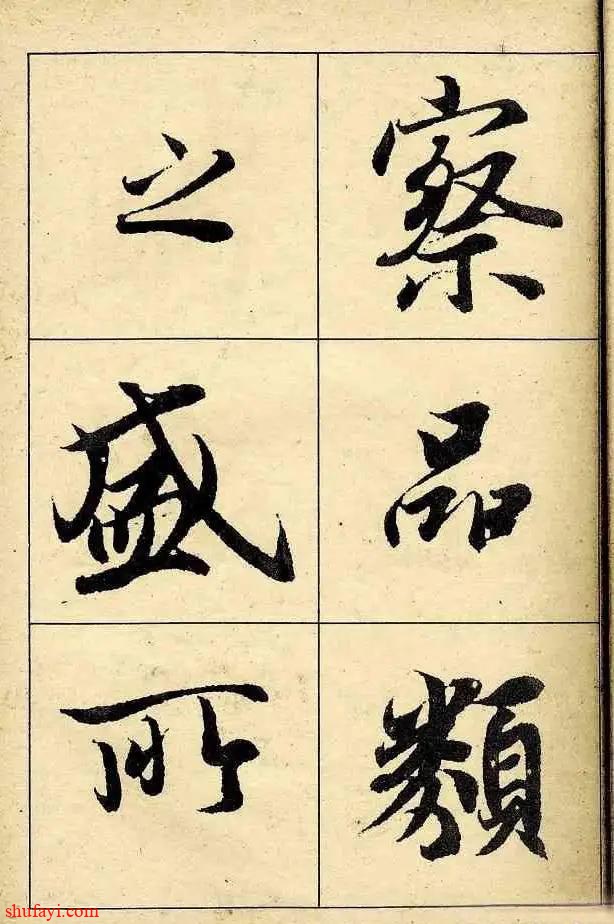 察品類
之盛所
shufayi.com